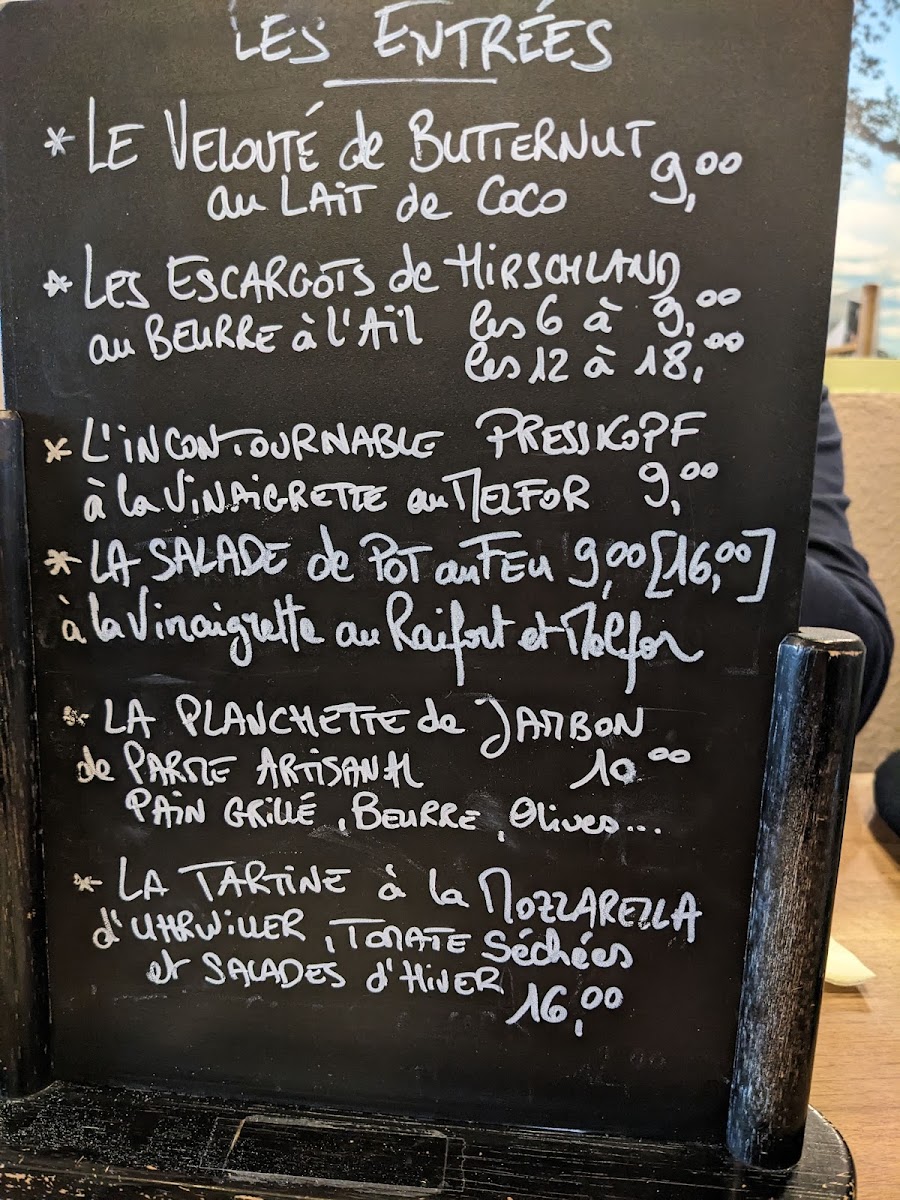 LES ENTRÉES
* LE VELOUTÉ de BUTTERNUT
au LAIT de COCO 9,00
* LES ESCARGOTS de HIRSCHLAND
au BEURRE à L'AIL les 6 à 9,00
les 12 à 18,00
* L'INCONTOURNABLE PRESSKOPF
à la VINAIGRETTE au MELFOR 9,00
* LA SALADE de POT au FEU 9,00 [16,00]
à la Vinaigrette au Raifort et Melfor
* LA PLANCHETTE de JAMBON
de PARME ARTISANAL 10,00
PAIN GRILLÉ, BEURRE, Olives...
* LA TARTINE à la MOZZARELLA
d'UHRWILLER, TOMATE Séchées
et SALADES d'HIVER
16,00